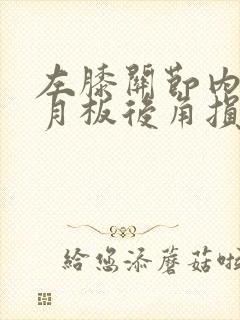 左膝關節内
月板後角損
給您添蘑菇啦